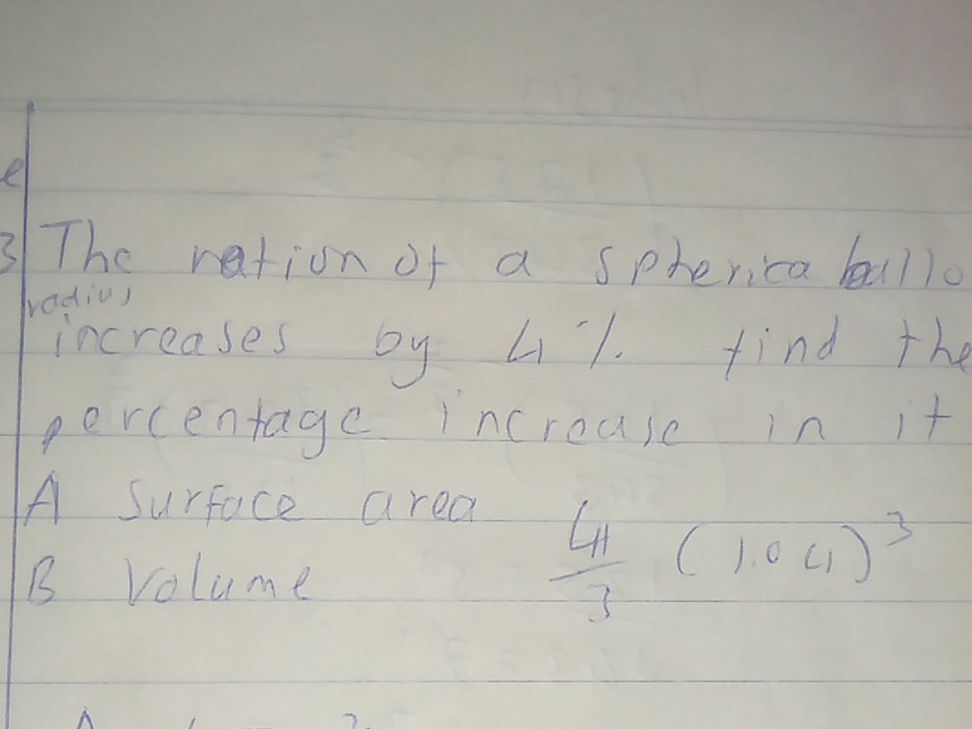 e
3 The ration of a spherica ballo
radius
increases by 4%. find the
percentage increase in it
A Surface area
B Volume 4π/3 (1.04)³